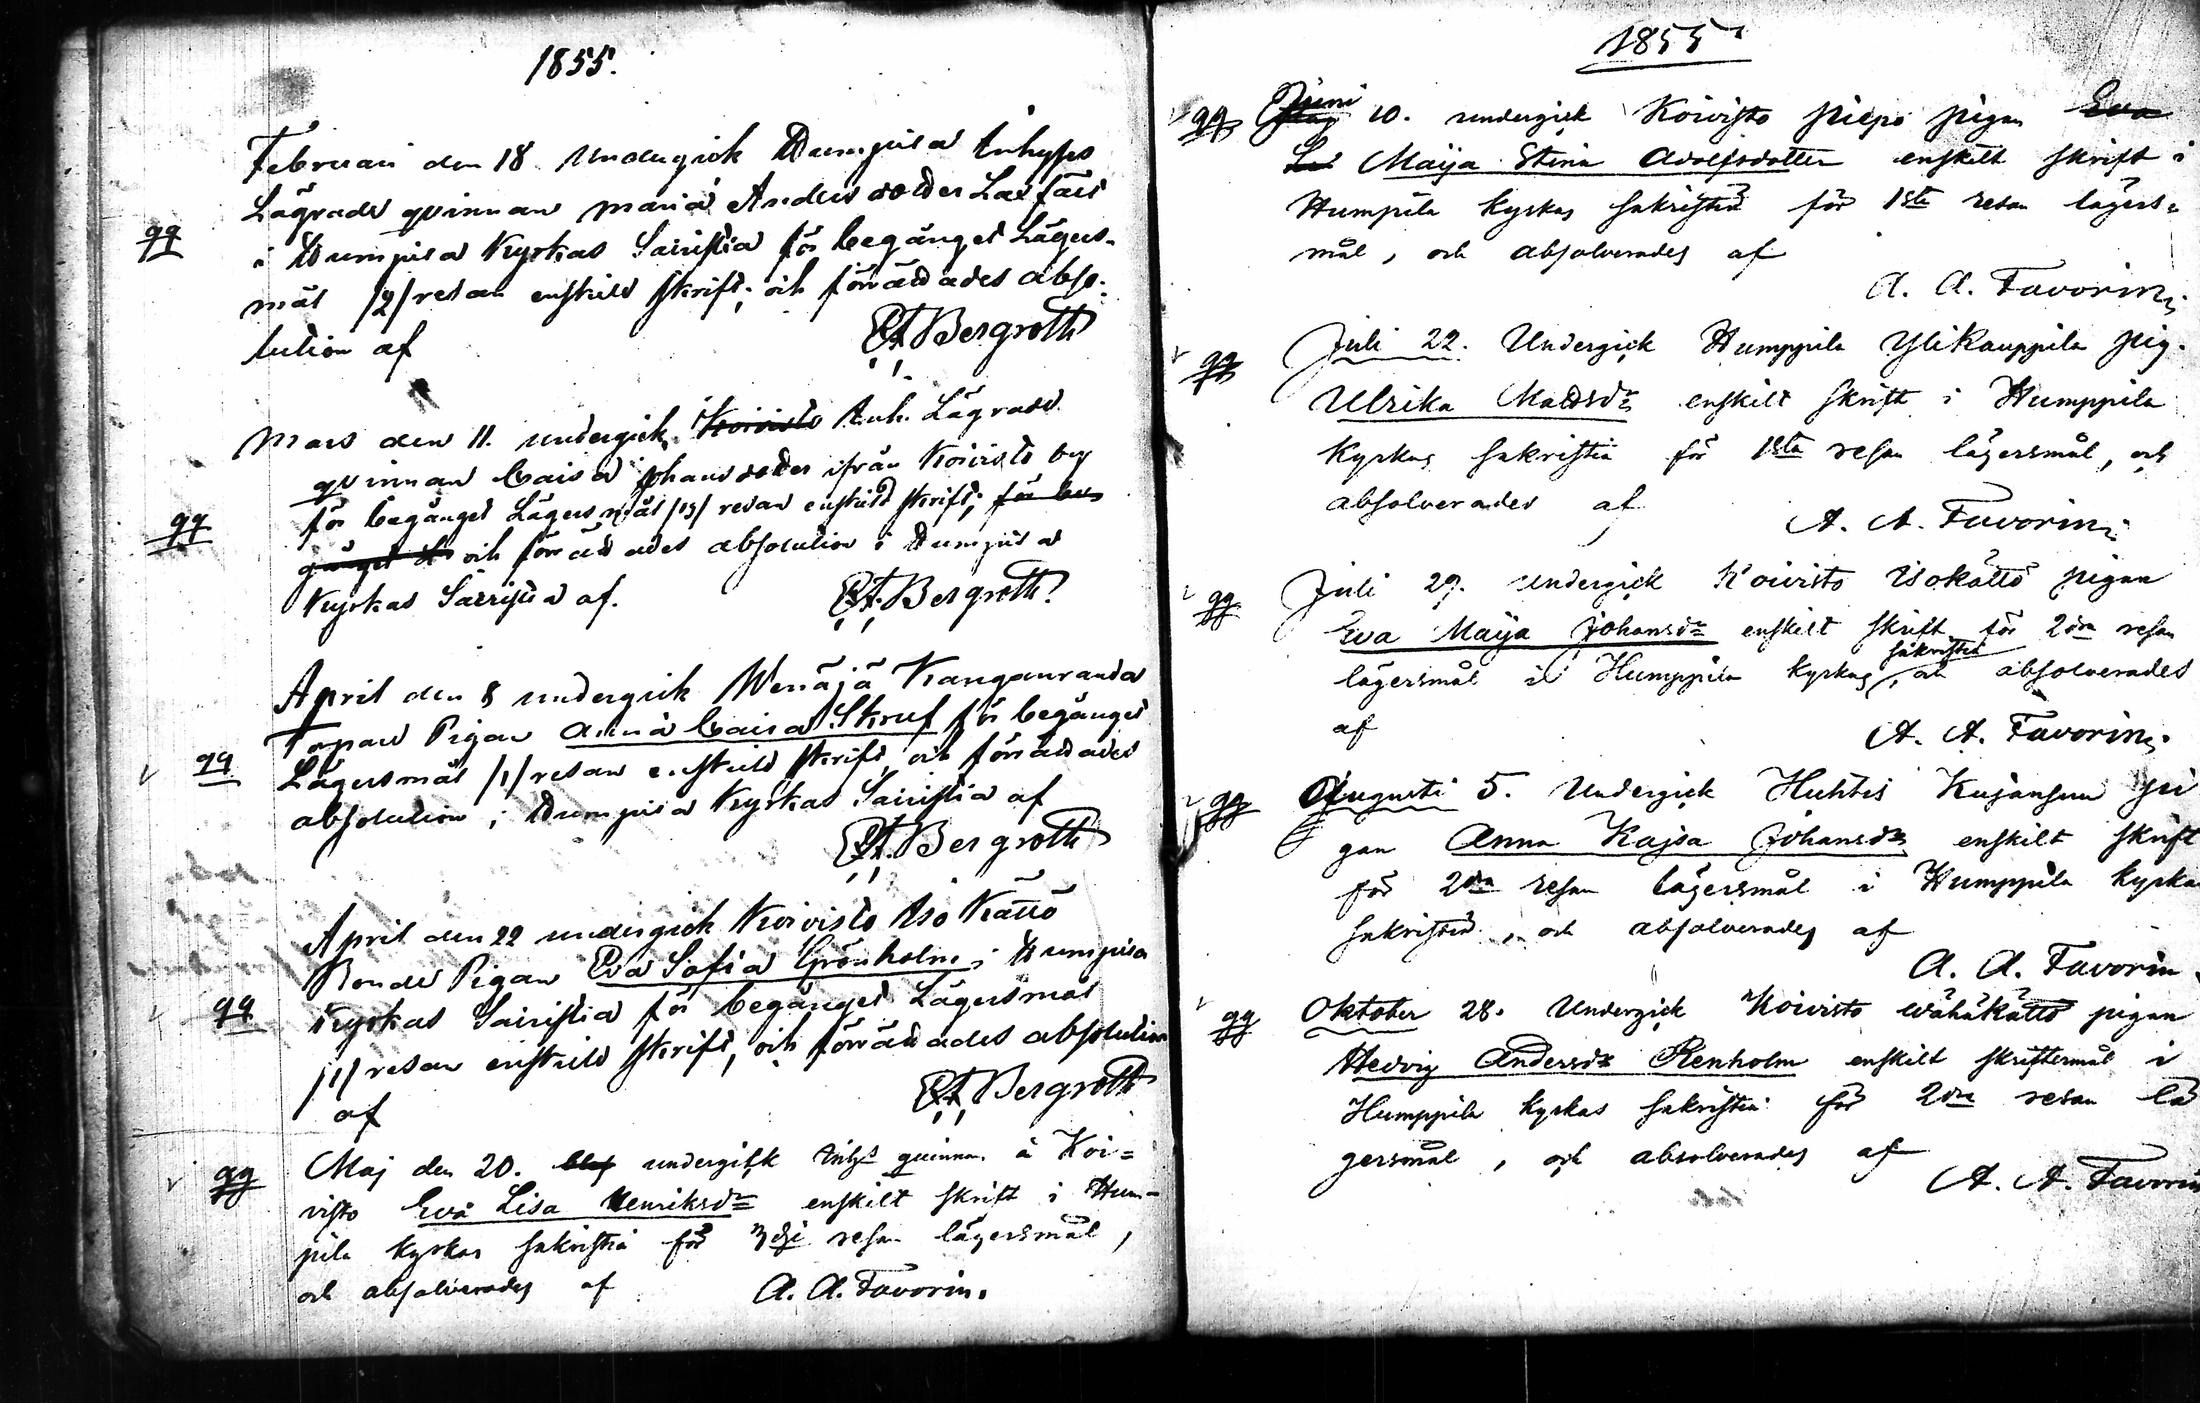 1855.
Februari den 18 undergick Humpila Inhyses
Lägrade qvinnan Maria Anders dotter
i Humpila Kyrkas Sacristia för begånget Lägers-
mål /2/ resan enskild skrift; och förrättades abso-
lution af Bergroth
qq
Mars den 11. undergick Koivisto Inh. Lägrade
qvinnan Caisa Johans dotter ifrån Koivisto by
för begånget Lägersmål resan enskild skrift, för be-
gånget L och förrättades absolution i Humpila
Kyrkas Sacristia af. Bergroth
qq
April den 8 undergick Wenäjä Kanganranda
Torpare Pigan Anna Caisa Skruf för begånget
Lägersmål /1/ resan enskild skrift, och förrättades
absolution i Humpila Kyrkas Sacristia af
qq
Bergroth
April den 22 undergick Koivisto Iso Kättö
Bonde Pigan Eva Sofia Grönholm i Humpila
Kyrkas Sacristia för begånget Lägersmål
/1/ resan enskild skrift, och förrättades absolution
af Bergroth
qq
qq Maj den 20. undergick Inhs qvinnan å Koi=
visto Eva Lisa Henriksdr enskilt skrift i Hum-
pila kyrkas sakristia för 3dje resan lägersmål,
och absolverades af A. A. Favorin.
1855
qq Juni 10. undergick Koivisto Piepo pigan Eva
Maija Stina Adolfsdotter enskilt skrift i
Humpila kyrkas sakristia för 1sta resan lägers=
mål, och absolverades af
A. A. Favorin.
qq Juli 22. Undergick Humppila Ylikauppila pig.
Ulrika Mattsdr enskilt skrift i Humppila
kyrkas sakristia för 1sta resan lägersmål, och
absolverades af
A. A. Favorin.
qq Juli 29. undergick Koivisto Isokättö pigan
Eva Maija Johansdr enskilt skrift för 2dra resan
lägersmål i Humppila kyrkas sakristia, och absolverades
af A. A. Favorin.
qq Augusti 5. Undergick Huhtis Kujansuu pi
gan Anna Kajsa Johansdr enskilt skrift
för 2dra resan lägersmål i Humppila kyrka
sakristia, och absolverades af
A. A. Favorin.
qq Oktober 28. Undergick Koivisto Wähäkättö pigan
Hedvig Andersdr Renholm enskilt skriftermål i
Humppila kyrkas sakristia för 2dra resan lä
gersmål, och absolverades af
A. A. Favorin